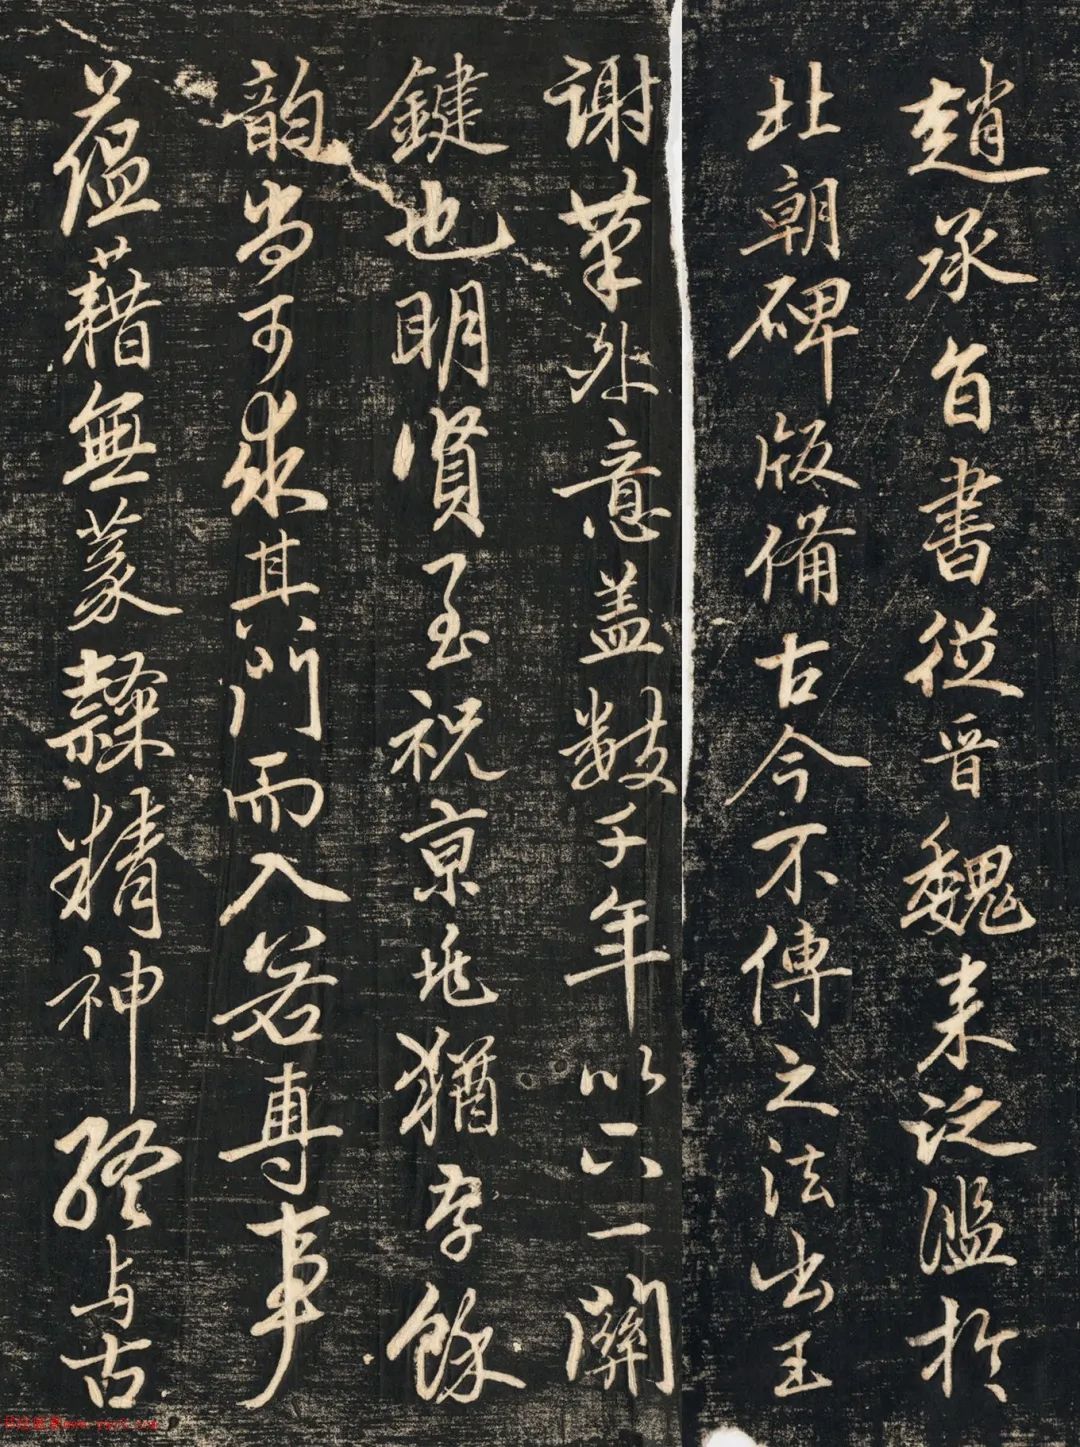 趙承旨書從晋魏来泛濫於
北朝碑版備古今不傳之法出王
谢筆外意盖数千年以一關
鍵也明賢至祝京兆猶存餘
韵尚可求其門而入若專事
蕴藉無篆隸精神終与古